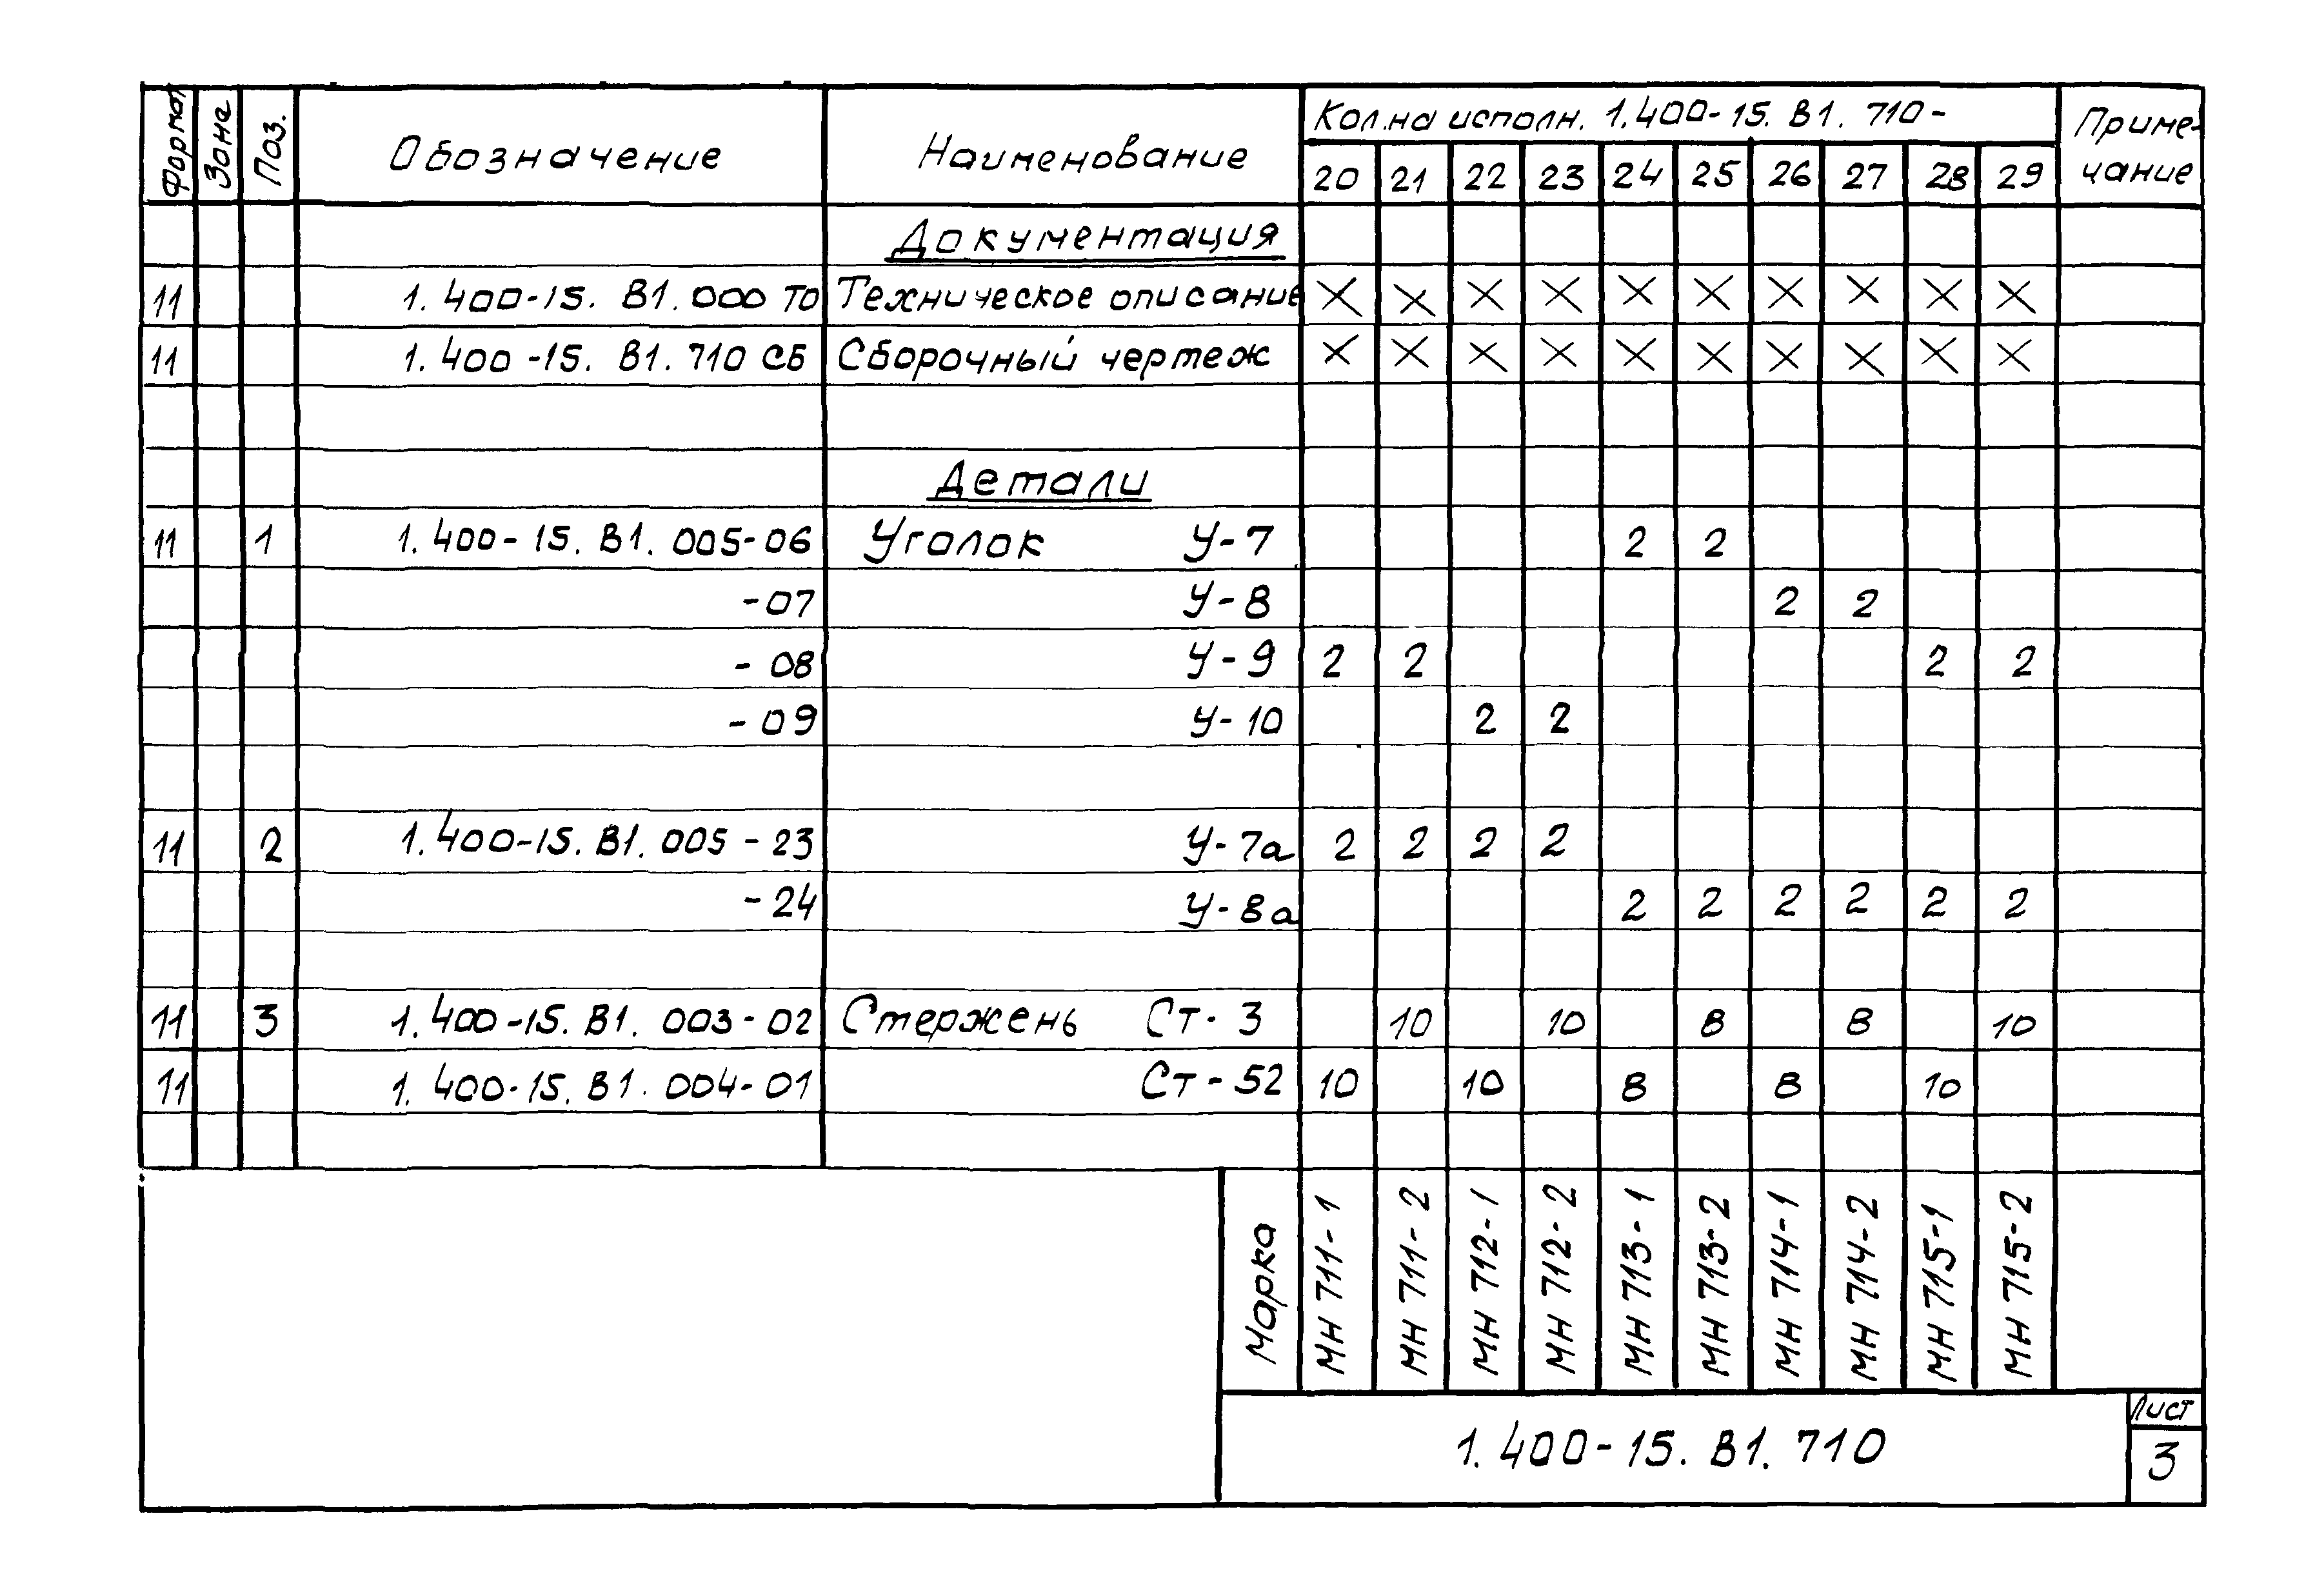 Формат Зона Поз. Обозначение Наименование Кол.на исполн. 1.400-15.В1.710- Примечание
20 21 22 23 24 25 26 27 28 29
Документация
11 1.400-15.В1.000 ТО Техническое описание X X X X X X X X X X
11 1.400-15.В1.710 СБ Сборочный чертеж X X X X X X X X X X
Детали
11 1 1.400-15.В1.005-06 Уголок У-7 2 2
-07 У-8 2 2
-08 У-9 2 2 2 2
-09 У-10 2 2
11 2 1.400-15.В1.005-23 У-7а 2 2 2 2
-24 У-8а 2 2 2 2 2 2
11 3 1.400-15.В1.003-02 Стержень Ст-3 10 10 8 8 10
11 1.400-15.В1.004-01 Ст-52 10 10 8 8 10
Марка МН 711-1 МН 711-2 МН 712-1 МН 712-2 МН 713-1 МН 713-2 МН 714-1 МН 714-2 МН 715-1 МН 715-2
1.400-15.В1.710
Лист
3